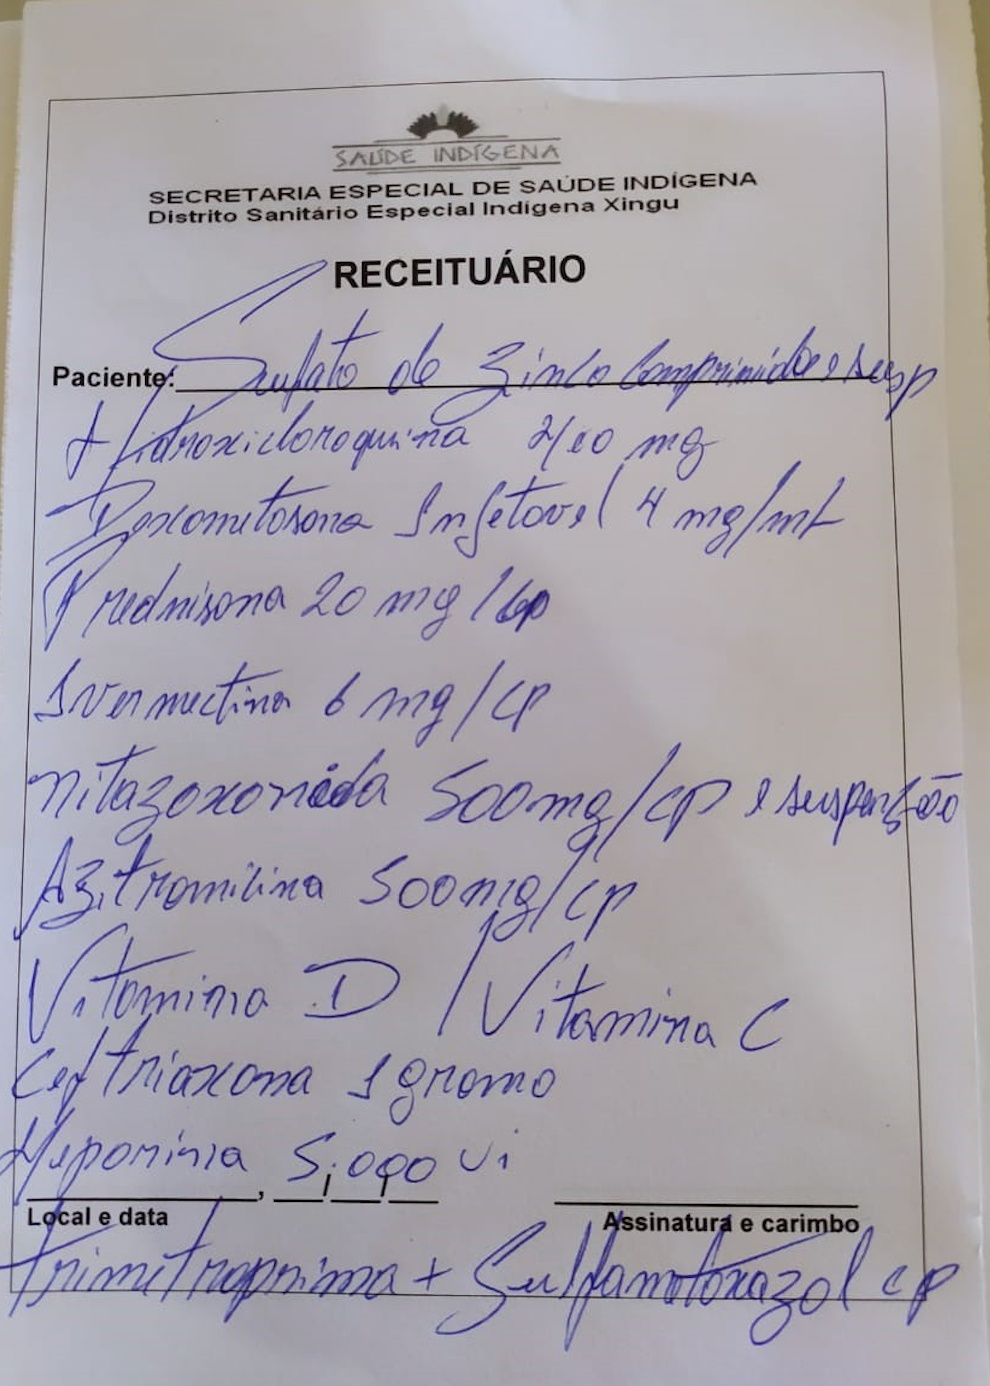 SAÚDE INDÍGENA
SECRETARIA ESPECIAL DE SAÚDE INDÍGENA
Distrito Sanitário Especial Indígena Xingu
RECEITUÁRIO
Paciente: Sulfato de Zinco Comprimido e susp
Hidroxicloroquina 400 mg
Dexametosona Injetavel 4 mg/ml
Prednisona 20 mg/cp
Ivermectina 6 mg/cp
nitazoxonida 500mg/cp e suspensão
Azitromicina 500mg/cp
Vitamina D / Vitamina C
Ceftriaxona 1 gramo
Heporinia 5.000 ui
Local e data
Assinatura e carimbo
trimetroprima + Sulfamotoxazol cp